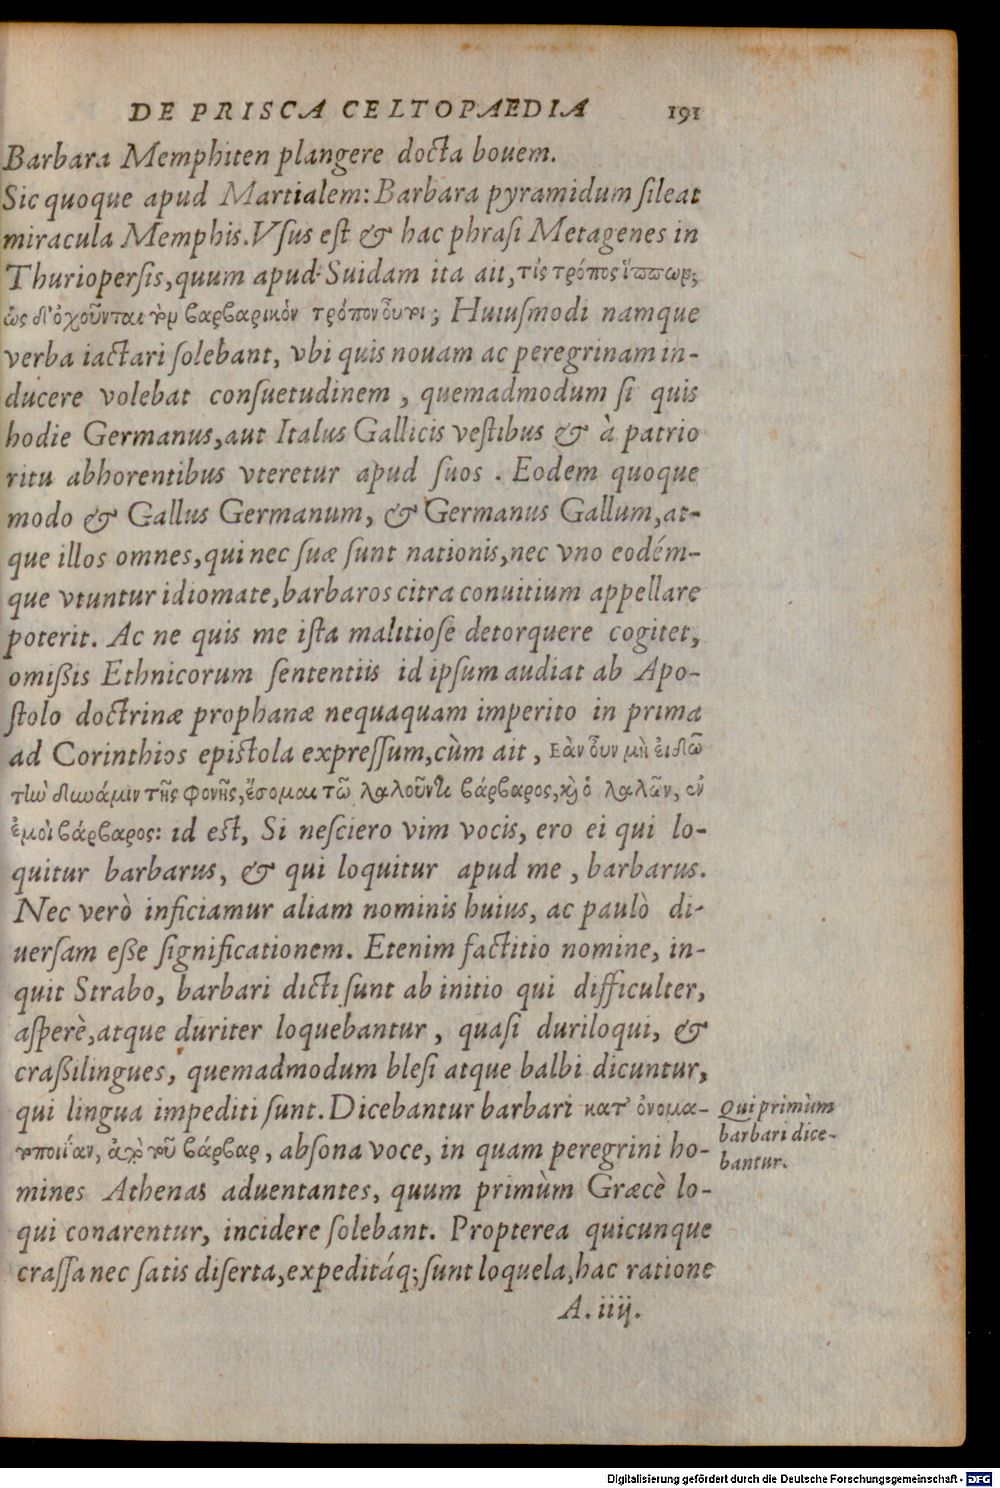 DE PRISCA CELTOPAEDIA 191
Barbara Memphiten plangere docta bouem.
Sic quoque apud Martialem: Barbara pyramidum ſileat
miracula Memphis. Vſus eſt & hac phraſi Metagenes in
Thurioperſis, quum apud Suidam ita ait, τίς τρόπος ἵππων;
ὡς δ' ὀχοῦνται τὸν βαρβαρικόν τρόπον οὗτοι; Huiuſmodi namque
verba iactari ſolebant, vbi quis nouam ac peregrinam in-
ducere volebat conſuetudinem, quemadmodum ſi quis
hodie Germanus, aut Italus Gallicis veſtibus & à patrio
ritu abhorentibus vteretur apud ſuos. Eodem quoque
modo & Gallus Germanum, & Germanus Gallum, at-
que illos omnes, qui nec ſuæ ſunt nationis, nec vno eodém-
que vtuntur idiomate, barbaros citra conuitium appellare
poterit. Ac ne quis me iſta malitioſe detorquere cogitet,
omißis Ethnicorum ſententiis id ipſum audiat ab Apo-
ſtolo doctrinæ prophanæ nequaquam imperito in prima
ad Corinthios epiſtola expreſſum, cùm ait, Εὰν οὖν μὴ εἰδῶ
τὴν δύναμιν τῆς φονῆς, ἔσομαι τῷ λαλοῦντι βάρβαρος, καὶ ὁ λαλῶν, ἐν
ἐμοὶ βάρβαρος: id eſt, Si neſciero vim vocis, ero ei qui lo-
quitur barbarus, & qui loquitur apud me, barbarus.
Nec verò inficiamur aliam nominis huius, ac paulò di-
uerſam eße ſignificationem. Etenim factitio nomine, in-
quit Strabo, barbari dicti ſunt ab initio qui difficulter,
aſperè, atque duriter loquebantur, quaſi duriloqui, &
craßilingues, quemadmodum bleſi atque balbi dicuntur,
qui lingua impediti ſunt. Dicebantur barbari κατ' ὀνομα-
τποιΐαν, ἀπὸ τοῦ βάρβαρ, abſona voce, in quam peregrini ho-
mines Athenas aduentantes, quum primùm Græcè lo-
qui conarentur, incidere ſolebant. Propterea quicunque
craſſa nec ſatis diſerta, expeditáq; ſunt loquela, hac ratione
A. iiij.
Qui primùm
barbari dice-
bantur.
Digitalisierung gefördert durch die Deutsche Forschungsgemeinschaft - DFG